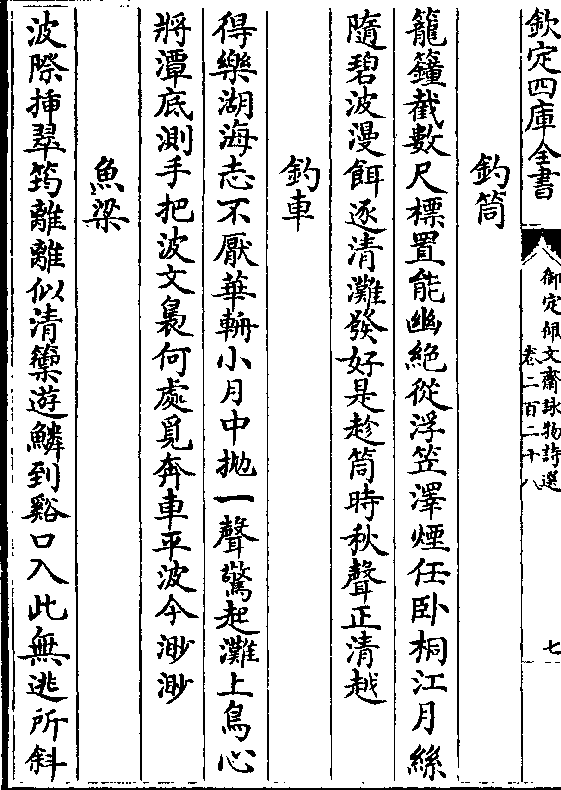 欽定四庫全書
御定佩文齋詠物詩選
卷二百二十八
七
釣筒
籠籦截數尺標置能幽絶從浮笠澤煙任卧桐江月絲
隨碧波漫餌逐清灘發好是趁筒時秋聲正清越
釣車
得樂湖海志不厭華輈小月中抛一聲驚起灘上鳥心
將潭底測手把波文裊何處覓奔車平波今渺渺
魚梁
波際揷翠筠離離似清籞遊鱗到谿口入此無逃所斜